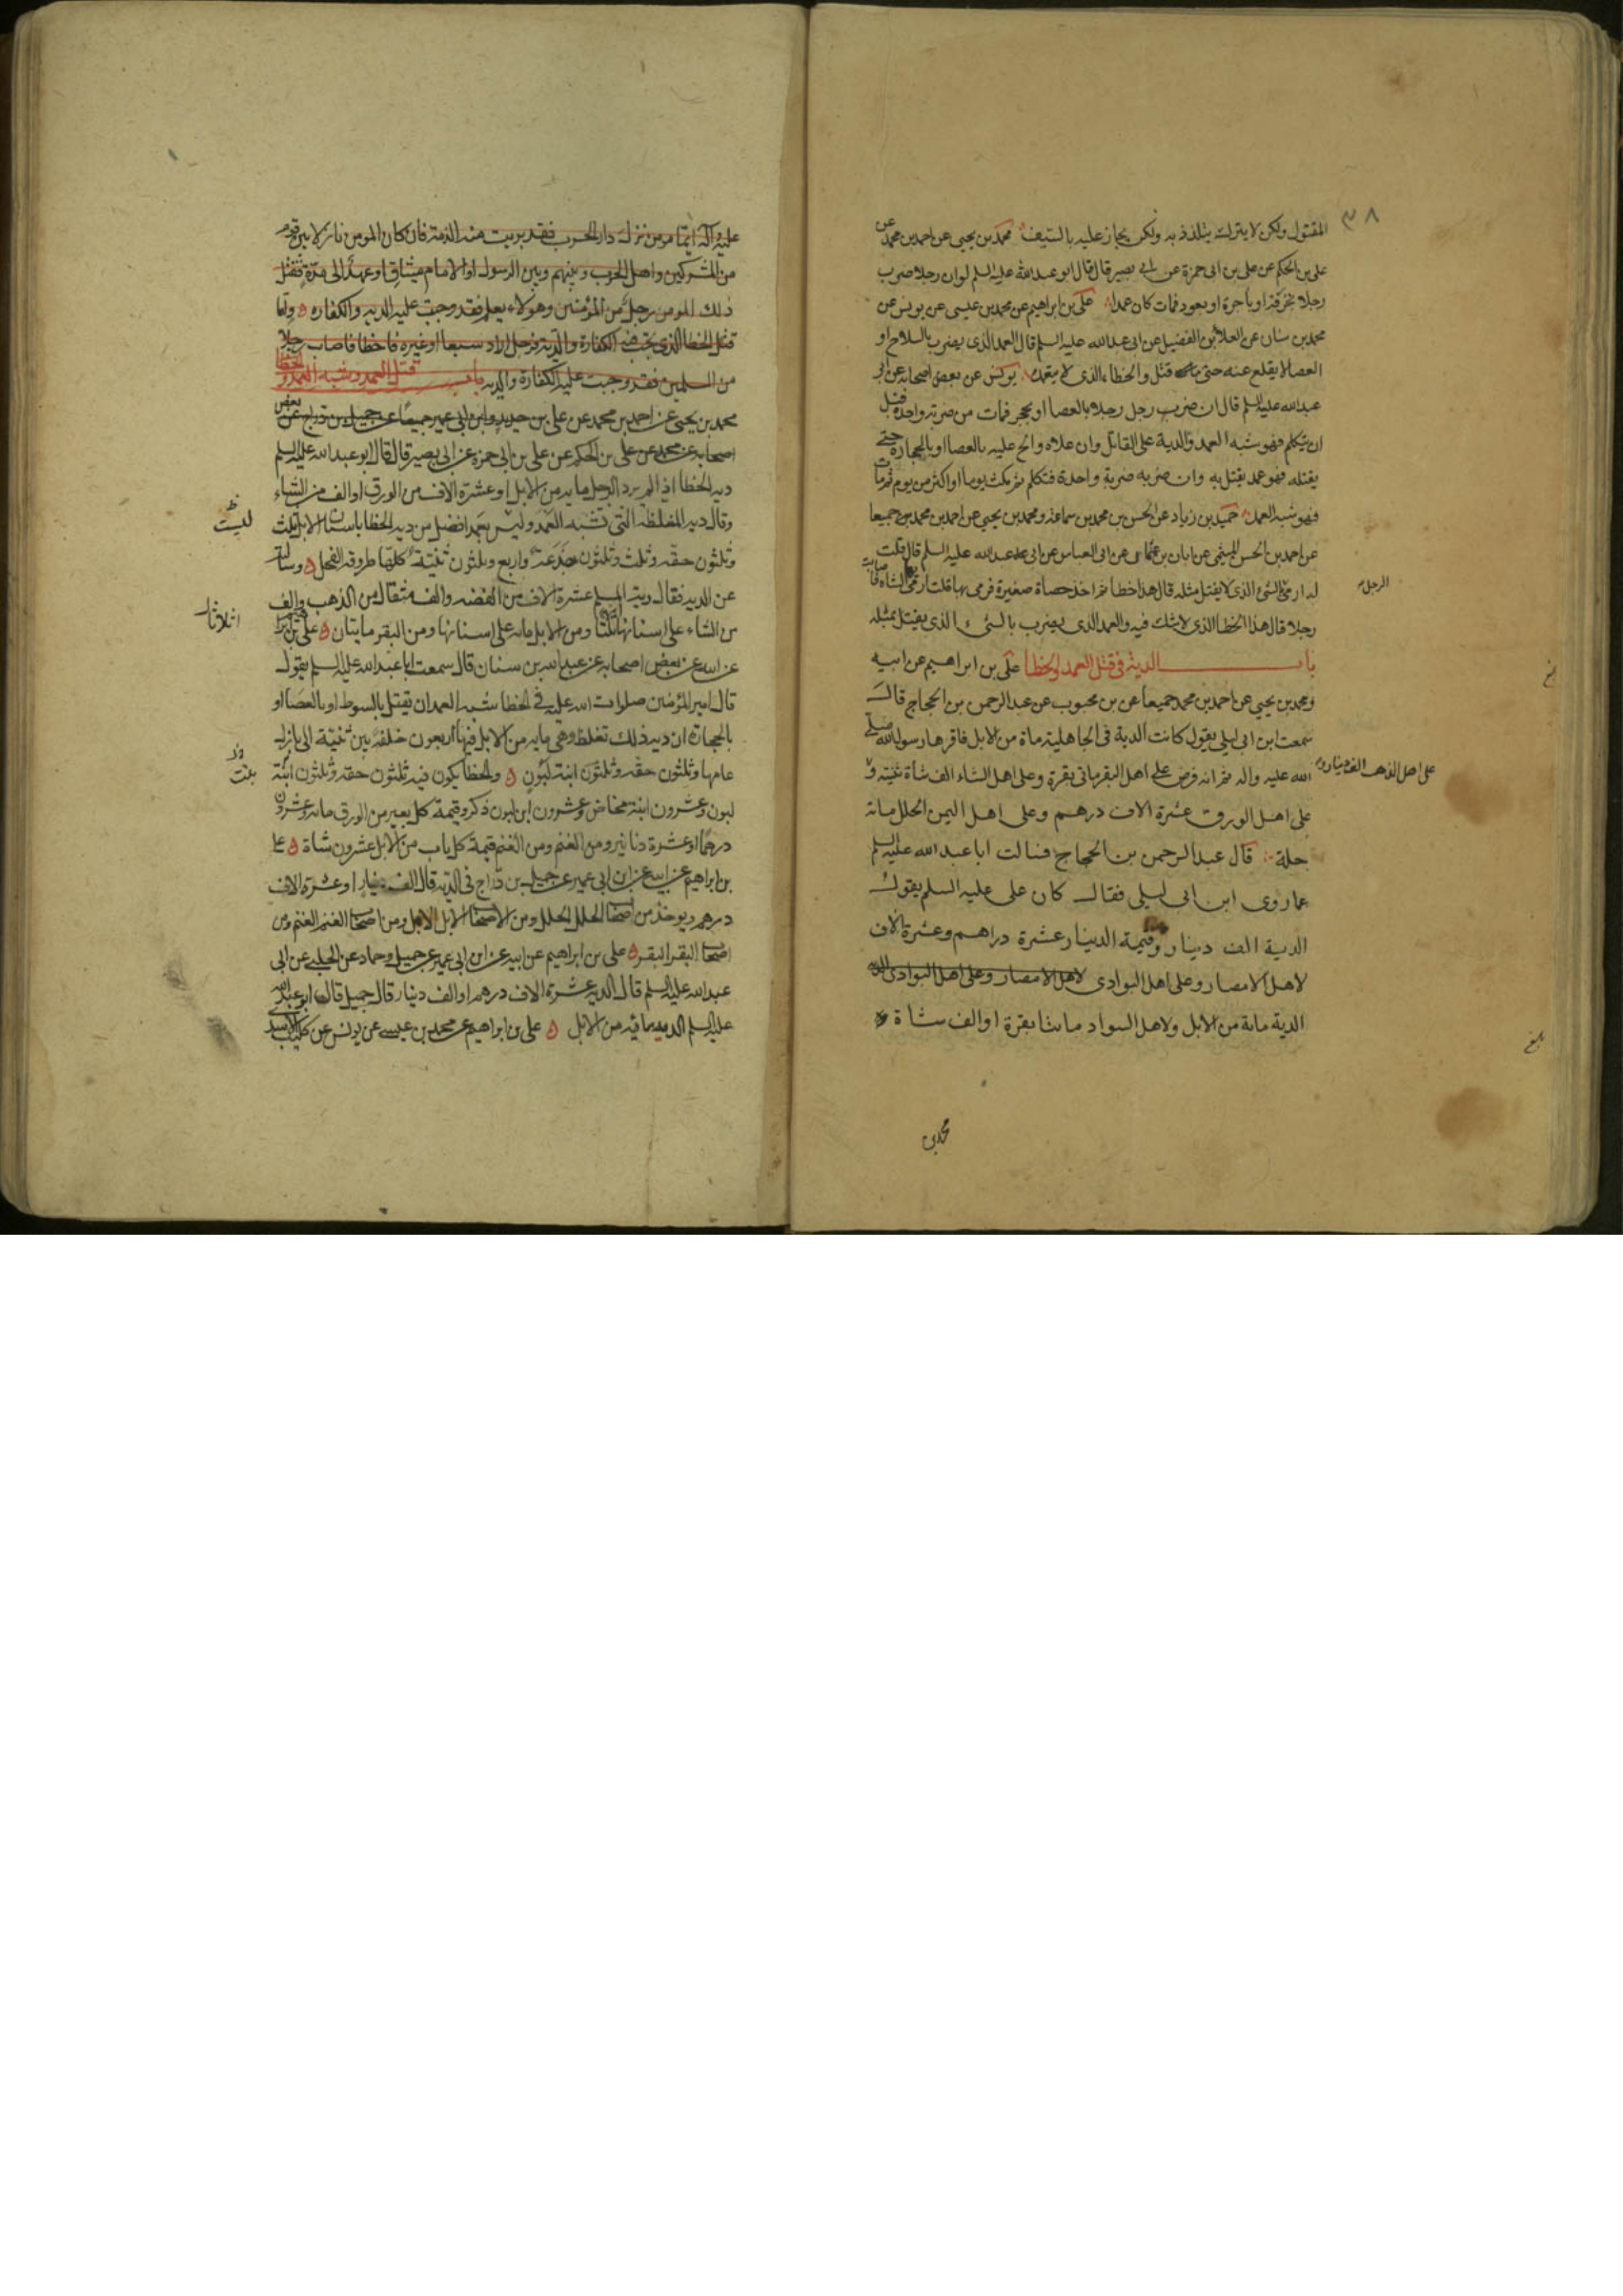 ٣٨
المقتول ولكن لا يترك يتلذذ به ولكن يجاز عليه بالسيف محمد بن يحيى عن احمد بن محمد عن
على بن الحكم عن على بن ابى حمزة عن ابى بصير قال قال ابو عبد الله عليه السلم لو ان رجلا ضرب
رجلا بخزفة او باجرة او بعود فمات كان عمدا على بن ابراهيم عن محمد بن عيسى عن يونس عن
محمد بن سنان عن العلا بن الفضيل عن ابى عبد الله عليه السلم قال العمد الذى يضرب بالسلاح او
العصا لا يقلع عنه حتى قتل والخطاء الذى لا يتعمده يونس عن بعض اصحابه عن ابى
عبد الله عليه السلم قال ان ضرب رجل رجلا بالعصا او بحجر فمات من ضربة واحدة قبل
ان يتكلم فهو شبه العمد والدية على القاتل وان علاه والح عليه بالعصا او بالحجارة حتى
يقتله فهو عمد يقتل به وان ضربه ضربة واحدة فتكلم ثم مكث يوما او اكثر من يوم ثم مات
فهو شبه العمد حميد بن زياد عن الحسن بن محمد بن سماعة ومحمد بن يحيى عن احمد بن محمد جميعا
عن احمد بن الحسن الميثمى عن ابان بن عثمان عن ابى العباس عن ابى عبد الله عليه السلم قال قلت
له ارمى الشئ الذى لا يقتل مثله قال هذا خطا ثم اخذ حصاة صغيرة فرمى بها قلت ارمى الشاة فاصابت
الرجل
رجلا قال هذا الخطا الذى لا شك فيه والعمد الذى يضرب بالشئ الذى يقتل بمثله
باب الدية فى قتل العمد والخطا على بن ابراهيم عن ابيه
ومحمد بن يحيى عن احمد بن محمد جميعا عن بن محبوب عن عبد الرحمن بن الحجاج قال
سمعت ابن ابى ليلى يقول كانت الدية فى الجاهلية ماة من الابل فاقرها رسول الله صلى
الله عليه واله ثم انه فرض على اهل البقر ماتى بقرة وعلى اهل الشاء الف شاة ثنية و
على اهل الذهب الف دينار
على اهل الورق عشرة الاف درهم وعلى اهل اليمن الحلل مائة
حلة قال عبد الرحمن بن الحجاج فسالت ابا عبد الله عليه السلم
عما روى ابن ابى ليلى فقال كان على عليه السلم يقول
الدية الف دينار وقيمة الدينار عشرة دراهم وعشرة الاف
لاهل الامصار وعلى اهل البوادى لاهل الامصار وعلى اهل البوادى الدية
الدية مائة من الابل ولاهل السواد مائتا بقرة او الف شاة
محمد بن
عليه واله ايما مومن نزل دار الحرب فقد بريت منه الذمة فان كان المومن نازلا بين قوم
من المشركين واهل الحرب وبينهم وبين الرسول او الامام ميثاق او عهد الى مدة فقتل
ذلك المومن رجل من المؤمنين وهو لا يعلم فقد وجبت عليه الدية والكفاره واما
قتل الخطا الذى تجب فيه الكفارة والدية فرجل اراد سبعا او غيره فاخطا فاصاب رجلا
من المسلمين فقد وجبت عليه الكفارة والديه باب قتل العمد وشبه العمد والخطا
محمد بن يحيى عن احمد بن محمد عن على بن حديد وابن ابى عمير جميعا عن جميل بن دراج عن بعض
اصحابه عن محمد عن على بن الحكم عن على بن ابى حمزة عن ابى بصير قال قال ابو عبد الله عليه السلم
دية الخطا اذا لم يرد الرجل ماية من الابل او عشرة الاف من الورق او الف من الشاء
وقال دية المغلظة التى تشبه العمد وليس بعمد افضل من دية الخطا باسنان الابل ثلث
وثلثون حقة وثلث وثلثون جذعة واربع وثلثون ثنية كلها طروقة الفحل وسالته
عن الدية فقال دية المسلم عشرة الاف من الفضة والف مثقال من الذهب والف
من الشاء على اسنانها اثلاثا ومن الابل ماية على اسنانها ومن البقر مايتان على بن ابراهيم
اثلاثا
عن ابيه عن بعض اصحابه عن عبد الله بن سنان قال سمعت ابا عبد الله عليه السلم يقول
قال امير المؤمنين صلوات الله عليه فى الخطا شبه العمد ان يقتل بالسوط او بالعصا او
بالحجارة ان دية ذلك تغلظ وهى ماية من الابل فيها اربعون خلفة بين ثنية الى بازل
عامها وثلثون حقة وثلثون ابنة لبون والخطا يكون فيه ثلثون حقة وثلثون ابنة
بنت
لبون وعشرون ابنة مخاض وعشرون ابن لبون ذكر وقيمة كل بعير من الورق مائة وعشرون
درهما او عشرة دنانير ومن الغنم قيمة كل ناب من الابل عشرون شاة على
بن ابراهيم عن ابيه عن ابن ابى عمير عن جميل بن دراج فى الدية قال الف دينار او عشرة الاف
درهم ويوخذ من اصحاب الحلل الحلل ومن اصحاب الابل الابل ومن اصحاب الغنم الغنم ومن
اصحاب البقر البقر على بن ابراهيم عن ابيه عن ابن ابى عمير عن جميل وحماد عن الحلبى عن ابى
عبد الله عليه السلم قال الدية عشرة الاف درهم او الف دينار قال جميل قال ابو عبد الله
عليه السلم الدية مائة من الابل على بن ابراهيم عن محمد بن عيسى عن يونس عن كليب الاسدى